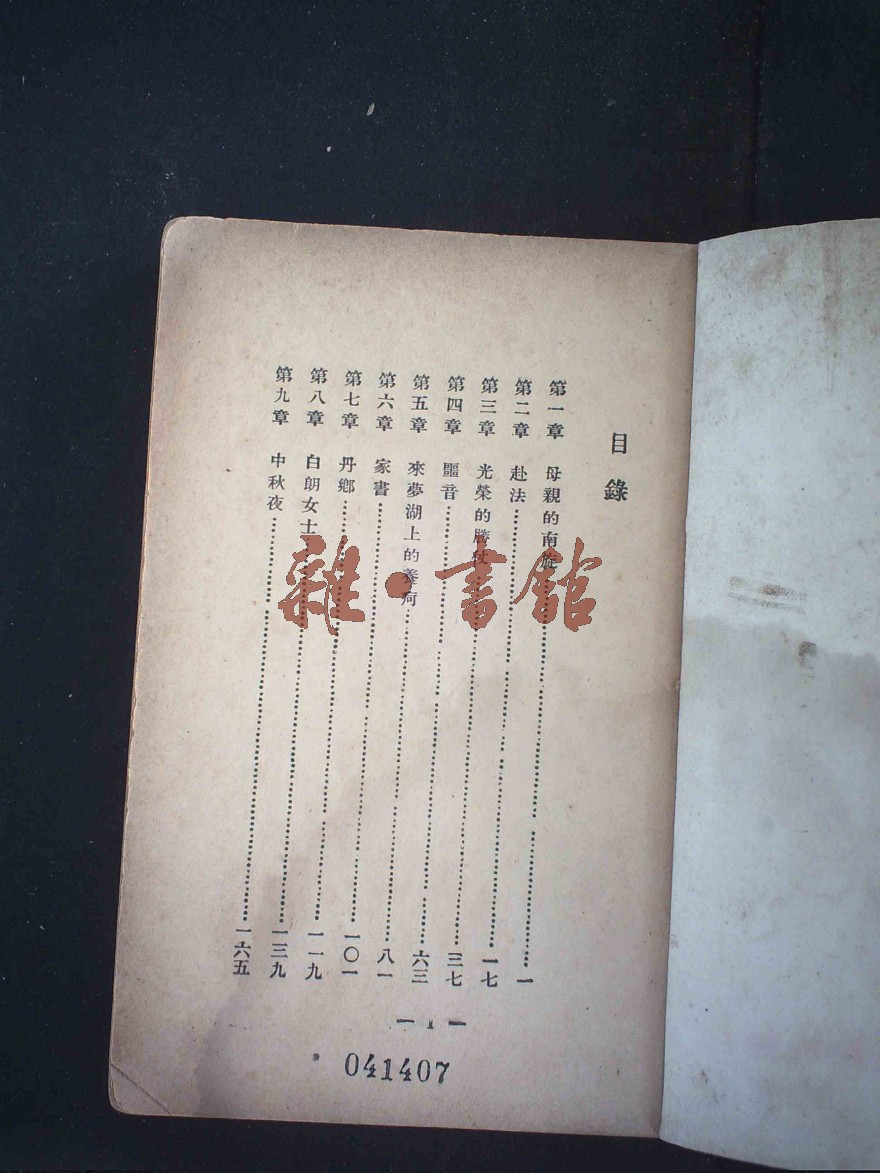 目錄
第一章 母親的南旋 一
第二章 赴法 一七
第三章 光榮的勝仗 三七
第四章 噩音 六三
第五章 來夢湖上的養疴 八一
第六章 家書 一〇一
第七章 丹鄉 一一九
第八章 白朗女士 一三九
第九章 中秋夜 一六五
— 1 —
041407
雜·書館